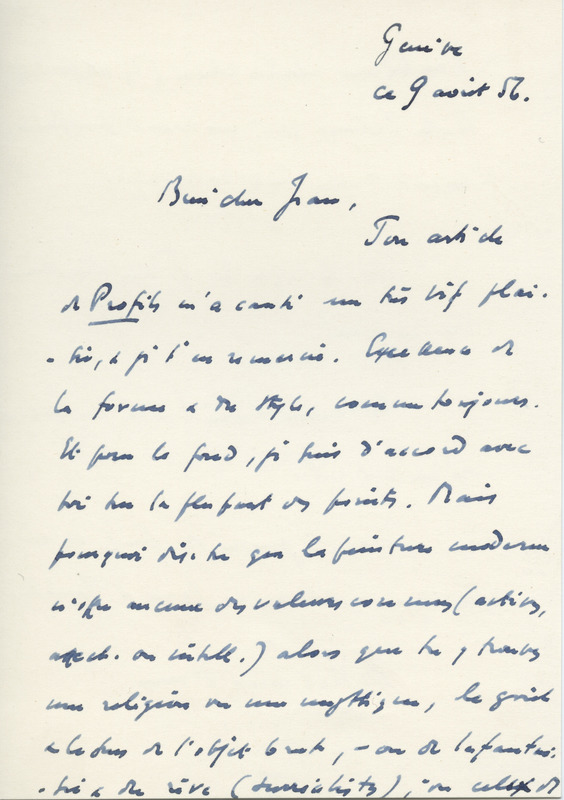 Genève
ce 9 août 56.
Bien cher Jean,
Ton article
de Profils m'a causé un très vif plai-
-sir, & je t'en remercie. Excellence de
la forme & du style, comme toujours.
Et pour le fond, je suis d'accord avec
toi sur la plupart des points. Mais
pourquoi dis-tu que la peinture moderne
n'offre aucune des valeurs connues (actives,
affect. ou intell.) alors que tu y trouves
une religion ou une mystique, le goût
& le sens de l'objet brut, - ou de la fantai-
-sie & du rêve (surréalistes), - ou celui de